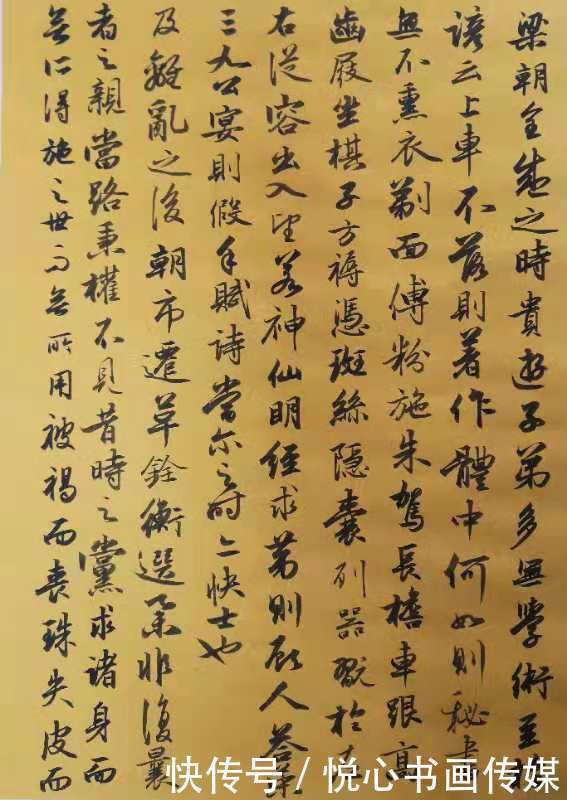 梁朝全盛之時貴遊子弟多無學術至於
諺云上車不落則著作體中何如則秘書
無不熏衣剃面傅粉施朱駕長檐車跟高
齒屐坐棋子方褥憑斑絲隱囊列器翫於左
右從容出入望若神仙明經求第則顧人答策
三九公宴則假手賦詩當尔之時亦快士也
及離亂之後朝市遷革銓衡選舉非復曩
者之親當路秉權不見昔時之黨求諸身而
無所得施之世而無所用被褐而喪珠失皮而
快传号/悦心书画传媒